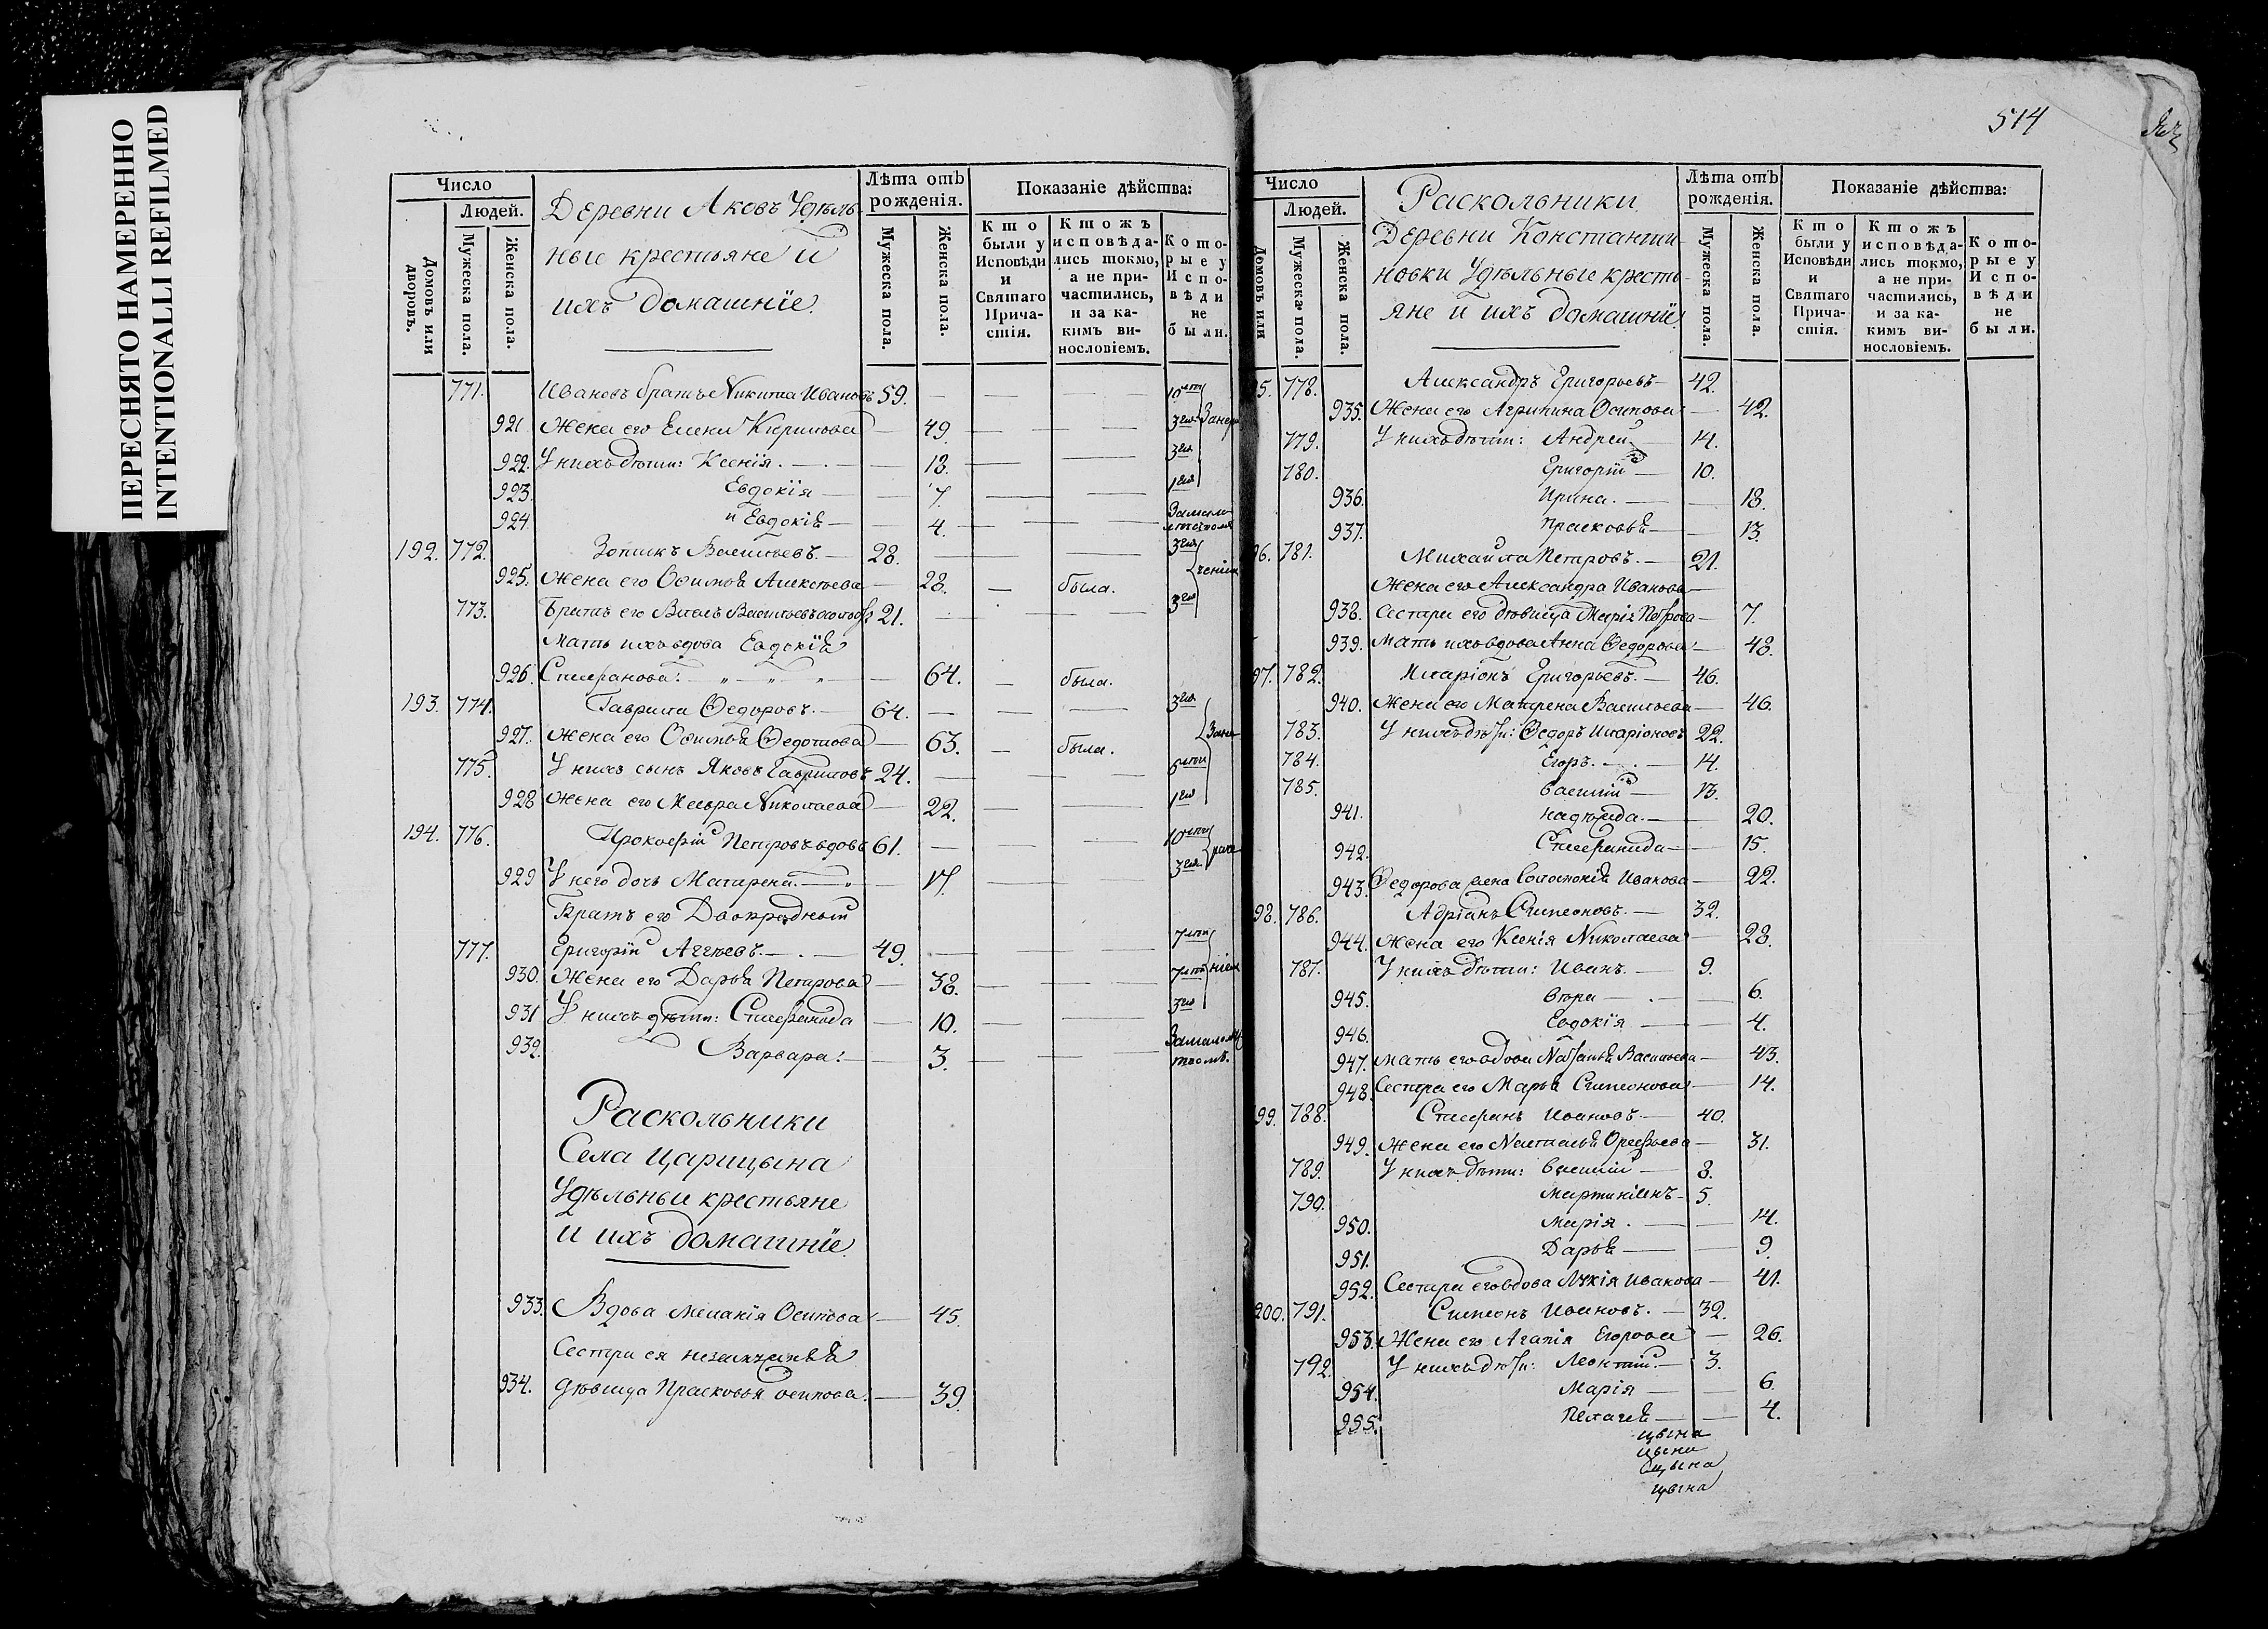 ПЕРЕСНЯТО НАМЕРЕННО
INTENTIONALLI REFILMED
Число
Людей.
Домовъ или дворовъ.
Мужеска пола.
Женска пола.
Деревни Аковъ Удѣль-
ные крестьяне и
ихъ домашніе.
Лѣта отъ рожденія.
Мужеска пола.
Женска пола.
Показаніе дѣйства:
Кто были у Исповѣди и Святаго Прича-стія.
Ктожъ исповѣда-лись токмо, а не при-частились, и за ка-кимъ ви-нословіемъ.
Кото-рые у Испо-вѣди не были.
771. Ивановъ братъ Никита Ивановъ 59. — — —
921. Жена его Елена Кирилова — 49. — —
922. У нихъ дѣти: Ксенія. — — 13. — —
923. Евдокія — — 7. — —
924. и Евдокія — — 4. — —
192. 772. Василъевъ. — 28. — — —
925. Жена его Офимья Алексѣева — 28. — была.
773. Братъ его Власъ Васильевъ 21. — — —
Мать ихъ вдова Евдокія
926. Стефанова. — 64. — была.
193. 774. Гаврила Ѳедоровъ. — 64. — — —
927. Жена его Офимья Ѳедотова — 63. — была.
775. У нихъ сынъ Яковъ Гавриловъ 24. — — —
928 Жена его Мавра Николаева — 22. — —
194. 776. Прокофій Петровъ вдовъ 61. — — —
929 У него дочь Матрена. — 17. — —
Братъ его Двоюродный
777. Григорій Аггѣевъ. — 49. — — —
930. Жена его Дарья Петрова — 38. — —
931 У нихъ дѣти: Стефанида — 10. — —
932. Варвара. — — 3. — —
Раскольники
Села Царицына
Удѣльные крестьяне
и ихъ домашніе.
933. Вдова Меланія Осипова — 45.
Сестра ея
934. дѣвица Прасковья Осипова. — 39.
514
Число
Людей.
Домовъ или
Мужеска пола.
Женска пола.
Раскольники
Деревни Константи-
новки Удѣльные кресть-
яне и ихъ домашніе.
Лѣта отъ рожденія.
Мужеска пола.
Женска пола.
Показаніе дѣйства:
Кто были у Исповѣди и Святаго Прича-стія.
Ктожъ исповѣда-лись токмо, а не при-частились, и за ка-кимъ ви-нословіемъ.
Кото-рые у Испо-вѣди не были.
5. 778. Александръ Григорьевъ — 42.
935. Жена его Агрипина Осипова — 42.
779. У нихъ дѣти: Андрей — 14.
780. Григорій — 10.
936. Ирина. — — 18.
937. Прасковья — 13.
96. 781. Михайла Петровъ. — 21.
Жена его Александра Иванова —
938. Сестра его дѣвица Марія Петрова — 7.
939. Мать ихъ вдова Анна Ѳедорова — 48.
97. 782. Иларіонъ Григорьевъ. — 46.
940. Жена его Матрена Васильева — 46.
783. У нихъ дѣти: Ѳедоръ Иларіоновъ 22.
784. Егоръ. — 14.
785. Василій — 13.
941. Надежда. — — 20.
942. Стефанида — — 15.
943. Ѳедорова жена Соломонія Иванова — 22.
98. 786. Адріанъ Симеоновъ. — 32.
944. Жена его Ксенія Николаева — 28.
787. У нихъ дѣти: Иванъ. — 9.
945. Вѣра — — 6.
946. Евдокія — — 4.
947. Мать его вдова Наталья Васильева — 43.
948. Сестра его Марья Симеонова — 14.
99. 788. Стефанъ Ивановъ. — 40.
949. Жена его Наталья Орефьева — 31.
789. У нихъ дѣти: Василій — 8.
790. Мартиніанъ — 5.
950. Марія. — — 14.
951. Дарья — — 9.
952. Сестра его вдова Лукія Иванова — 41.
200. 791. Симеонъ Ивановъ. — 32.
953. Жена его Агапія Егорова — 26.
792. У нихъ дѣти: Леонтій. — 3.
954. Марія — — 6.
955. Пелагея — — 4.